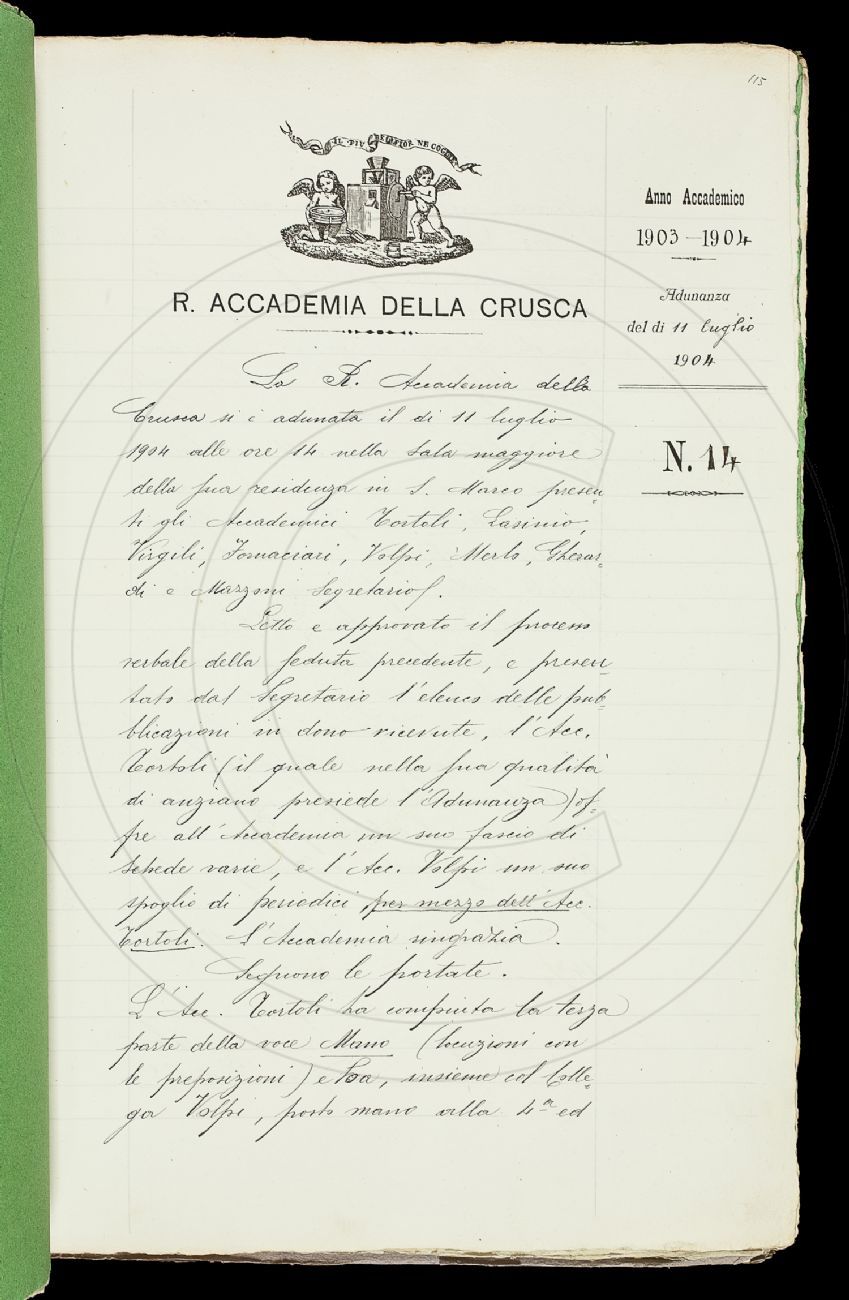 115
IL PIÙ BEL FIOR NE COGLIE
Anno Accademico
1903-1904
R. ACCADEMIA DELLA CRUSCA
Adunanza
del dì 11 luglio
1904
N. 14
La R. Accademia della
Crusca si è adunata il dì 11 luglio
1904 alle ore 14 nella Sala maggiore
della sua residenza in S. Marco presen-
ti gli Accademici Tortoli, Lasinio,
Virgili, Fornaciari, Volpi, Merlo, Gherar-
di e Mazzoni Segretario.
Letto e approvato il processo
verbale della seduta precedente, e presen-
tato dal Segretario l'elenco delle pub-
blicazioni in dono ricevute, l'Acc.
Tortoli (il quale nella sua qualità
di anziano presiede l'Adunanza) of-
fre all'Accademia un suo fascio di
schede varie, e l'Acc. Volpi un suo
spoglio di periodici, per mezzo dell'Acc.
Tortoli. L'Accademia ringrazia.
Seguono le portate.
L'Acc. Tortoli ha compiuta la terza
parte della voce Mano (locuzioni con
le preposizioni) e ha, insieme col Colle-
ga Volpi, posto mano alla 4ª ed